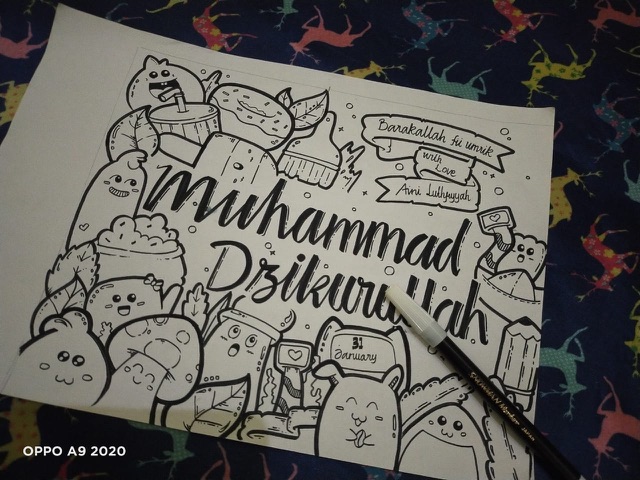 Barakallah fii umrik
with
Love
Aini Luthfiyyah
Muhammad
Dzikurullah
31
January
OPPO A9 2020